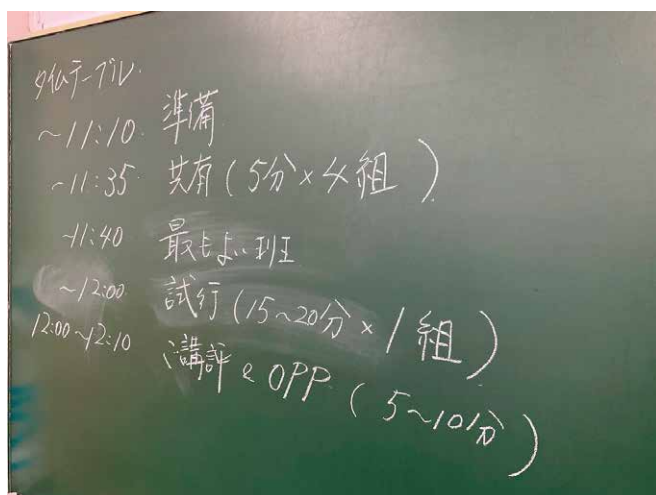 タイムテーブル.
~11:10 準備
~11:35 共有(5分×4組)
~11:40 最もよい班
~12:00 試行(15~20分×1組)
12:00~12:10 講評&OPP(5~10分)